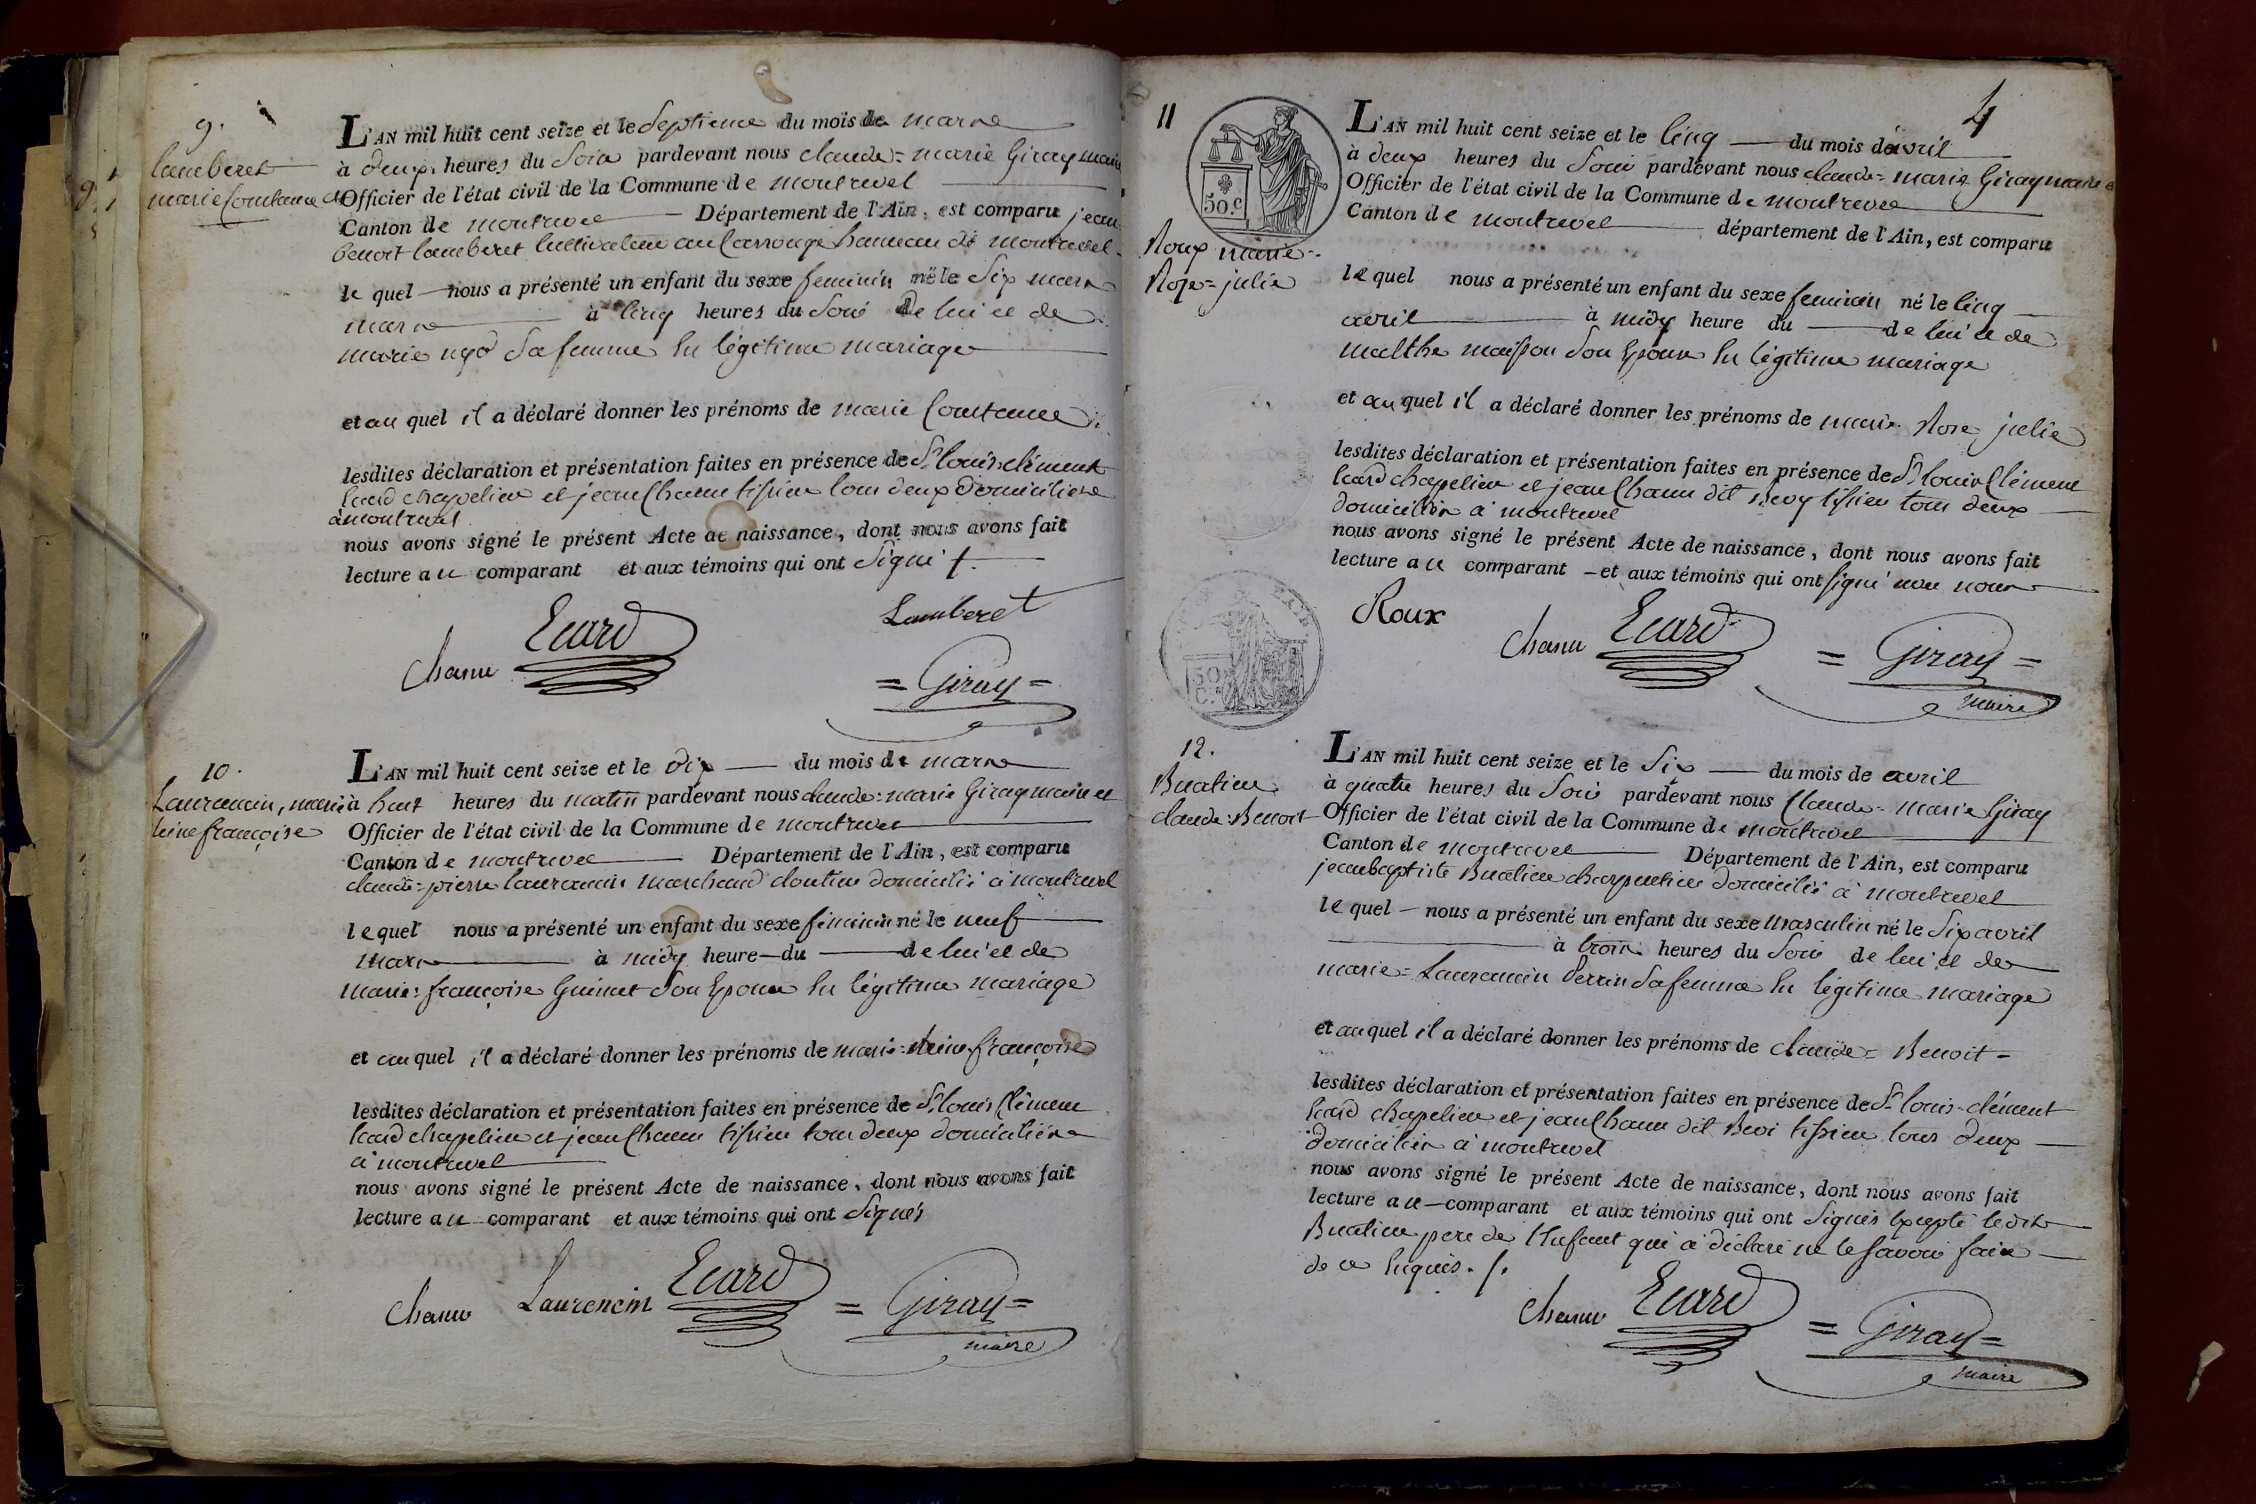 9.
Lamberet
marie Constance
L'AN mil huit cent seize et le Septieme du mois de mars
à deux heures du Soir pardevant nous claude = marie Giray maire
Officier de l'état civil de la Commune de montrevel
Canton de montrevel Département de l'Ain, est comparu jean
benoit lamberet Cultivateur au Carrouge hameau de montrevel
le quel nous a présenté un enfant du sexe feminin né le Six mars
mars à Cinq heures du Soir de lui et de
marie sa femme En légitime mariage
et au quel il a déclaré donner les prénoms de marie Constance
lesdites déclaration et présentation faites en présence de Sr louis clément
Ecard chapelier et jean Chanu tissier tous deux domiciliers
à montrevel
nous avons signé le présent Acte de naissance, dont nous avons fait
lecture au comparant et aux témoins qui ont Signé
Lamberet
Chanu Ecard
= Giray =
10.
Laurancin, marie
reine françoise
L'AN mil huit cent seize et le dix du mois de mars
à huit heures du matin pardevant nous claude = marie Giray maire et
Officier de l'état civil de la Commune de montrevel
Canton de montrevel Département de l'Ain, est comparu
claude = pierre laurancin marchand cloutier domicilié à montrevel
le quel nous a présenté un enfant du sexe féminin né le neuf
mars à midy heure du de lui et de
marie = françoise Guimet son Epouse En légitime mariage
et au quel il a déclaré donner les prénoms de marie = Reine françoise
lesdites déclaration et présentation faites en présence de Sr louis Clément
Ecard chapelier et jean Chanu tissier tous deux domiciliers
à montrevel
nous avons signé le présent Acte de naissance, dont nous avons fait
lecture au comparant et aux témoins qui ont Signés
Chanu Laurencin Ecard = Giray =
maire
4
11
50.C
Roux marie =
Rose = julie
L'AN mil huit cent seize et le Cinq du mois d'avril
à deux heures du Soir pardevant nous claude = marie Giray maire et
Officier de l'état civil de la Commune de montrevel
Canton de montrevel département de l'Ain, est comparu
le quel nous a présenté un enfant du sexe feminin né le Cinq
avril à midy heure du de lui et de
malthe maisson Son Epouse En légitime mariage
et au quel il a déclaré donner les prénoms de marie Rose julie
lesdites déclaration et présentation faites en présence de Sr louis Clément
Ecard chapelier et jean Chanu dit Revoy tissier tous deux
domiciliés à montrevel
nous avons signé le présent Acte de naissance, dont nous avons fait
lecture au comparant et aux témoins qui ont Signé avec nous
Roux
Chanu Ecard = Giray =
maire
50
C.
12.
Buatier
claude = Benoit
L'AN mil huit cent seize et le Six du mois de avril
à quatre heures du Soir pardevant nous Claude = marie Giray
Officier de l'état civil de la Commune de montrevel
Canton de montrevel Département de l'Ain, est comparu
jean baptiste Buatier charpentier domicilié à montrevel
le quel nous a présenté un enfant du sexe masculin né le Six avril
à trois heures du Soir de lui et de
marie = Laurancin Perrin Sa femme En légitime mariage
et au quel il a déclaré donner les prénoms de claude = Benoit =
lesdites déclaration et présentation faites en présence de Sr louis clément
Ecard chapelier et jean Chanu dit Revoi tissier tous deux
domiciliés à montrevel
nous avons signé le présent Acte de naissance, dont nous avons fait
lecture au comparant et aux témoins qui ont Signés Excepté ledit
Buatier pere de l'Enfant qui a déclaré ne le Savoir faire
de ce Enquis.
Chanu Ecard = Giray =
maire